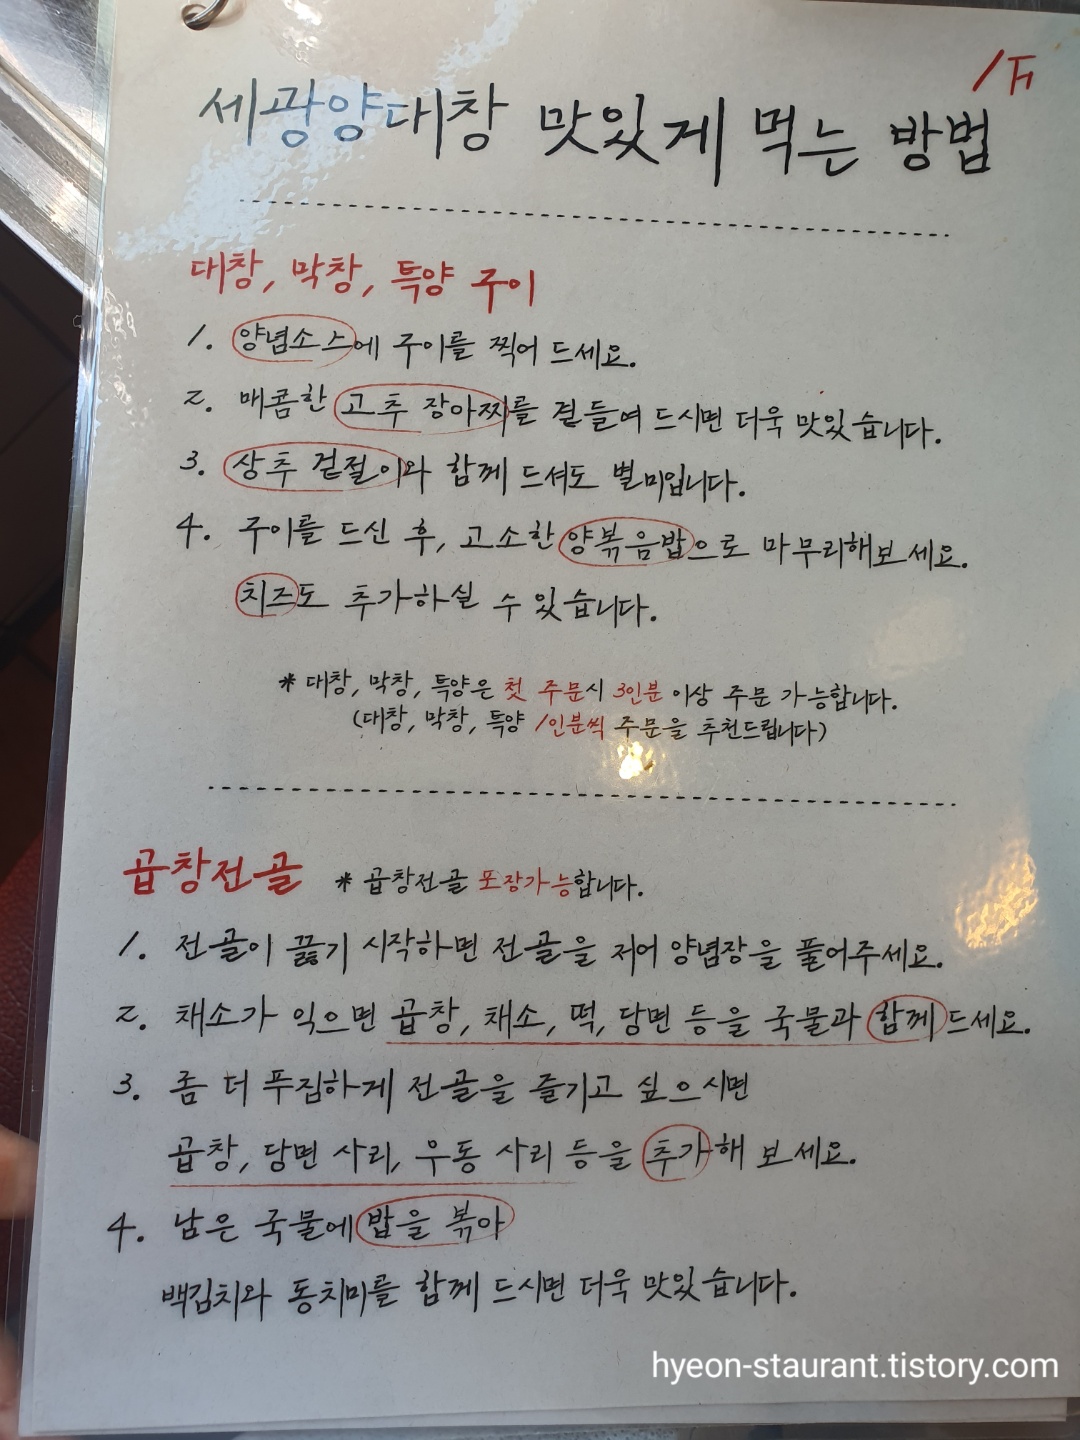 세광양대창 맛있게 먹는 방법
대창, 막창, 특양 구이
1. 양념소스에 구이를 찍어 드세요.
2. 매콤한 고추 장아찌를 곁들여 드시면 더욱 맛있습니다.
3. 상추 겉절이와 함께 드셔도 별미입니다.
4. 구이를 드신 후, 고소한 양볶음밥으로 마무리해보세요.
치즈도 추가하실 수 있습니다.
* 대창, 막창, 특양은 첫 주문시 3인분 이상 주문 가능합니다.
(대창, 막창, 특양 1인분씩 주문을 추천드립니다)
곱창전골 * 곱창전골 포장가능합니다.
1. 전골이 끓기 시작하면 전골을 저어 양념장을 풀어주세요.
2. 채소가 익으면 곱창, 채소, 떡, 당면 등을 국물과 함께 드세요.
3. 좀 더 푸짐하게 전골을 즐기고 싶으시면
곱창, 당면 사리, 우동 사리 등을 추가해 보세요.
4. 남은 국물에 밥을 볶아
백김치와 동치미를 함께 드시면 더욱 맛있습니다.
hyeon-staurant.tistory.com